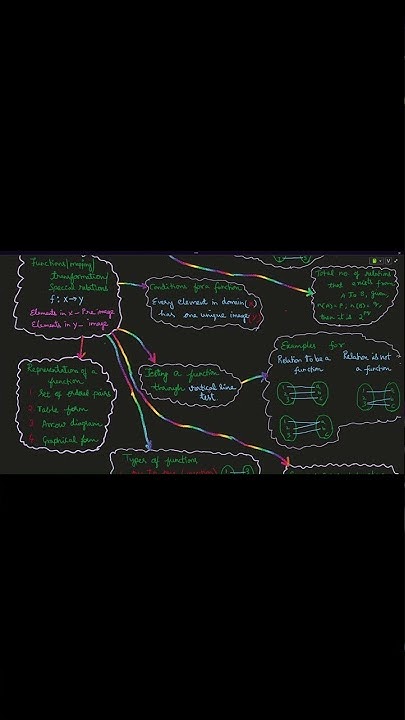 Functions/mapping/
transformation/
Special relations
f: x→y
Elements in x - Pre image
Elements in y - image
Conditions for a function
Every element in domain(x)
has one unique image(y)
Total no. of relations
that exists from
A to B, given,
n(A)=p, n(B)=q,
then it is 2^pq
Representation of a
function
1. Set of ordered pairs
2. Table form
3. Arrow diagram
4. Graphical form
Testing a function
through vertical line
test
Examples for
Relation to be a
function
Relation is not
a function
Types of functions